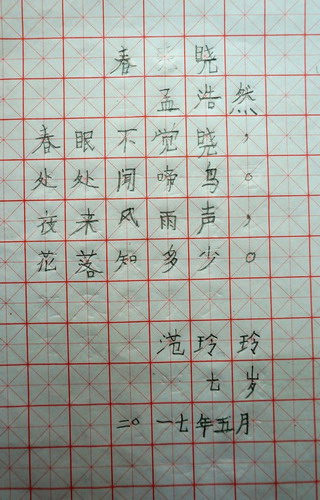 春晓
孟浩然
春眠不觉晓，
处处闻啼鸟。
夜来风雨声，
花落知多少。
范玲玲
七岁
二〇一七年五月